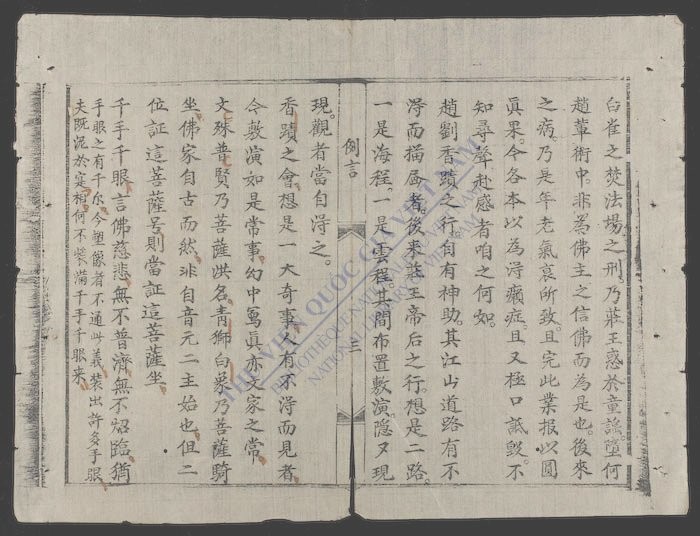 白雀之焚法場之刑乃莊王惑於童謡墮何
趙輩術中。非為佛主之信佛而為是也後來
之病。乃是年老氣衰所致。且完此業报以圓
眞果。今各本以為淂癩症。且又極口詆毁。不
知尋聲赴感者咱之何如。
趙劉香蹟之行。自有神助。其江山道路有不
淂而描啚者。後來莊王帝后之行。想是二路。
一是海程。一是雲程。其間布置敷演。隱又現
例言
三
現。觀者當自淂之。
香蹟之會。想一大奇事人有不淂而見者
今敷演如是常事幻中寫眞亦文家之常
文殊普賢乃菩薩洪名青獅白象乃菩薩騎
坐佛家自古而然非自音元二主始也但二
位証這菩薩号則當証這菩薩坐
千手千眼言佛慈悲無不普濟無不炤臨猶
手眼之有千尔今塑像者不通此義裝出許多手眼
夫既泥於寔相何不裝滿千手千眼來
THƯ VIỆN QUỐC GIA VIỆT NAM
BIBLIOTHÈQUE NATIONALE DU VIETNAM
NATIONAL LIBRARY OF VIETNAM